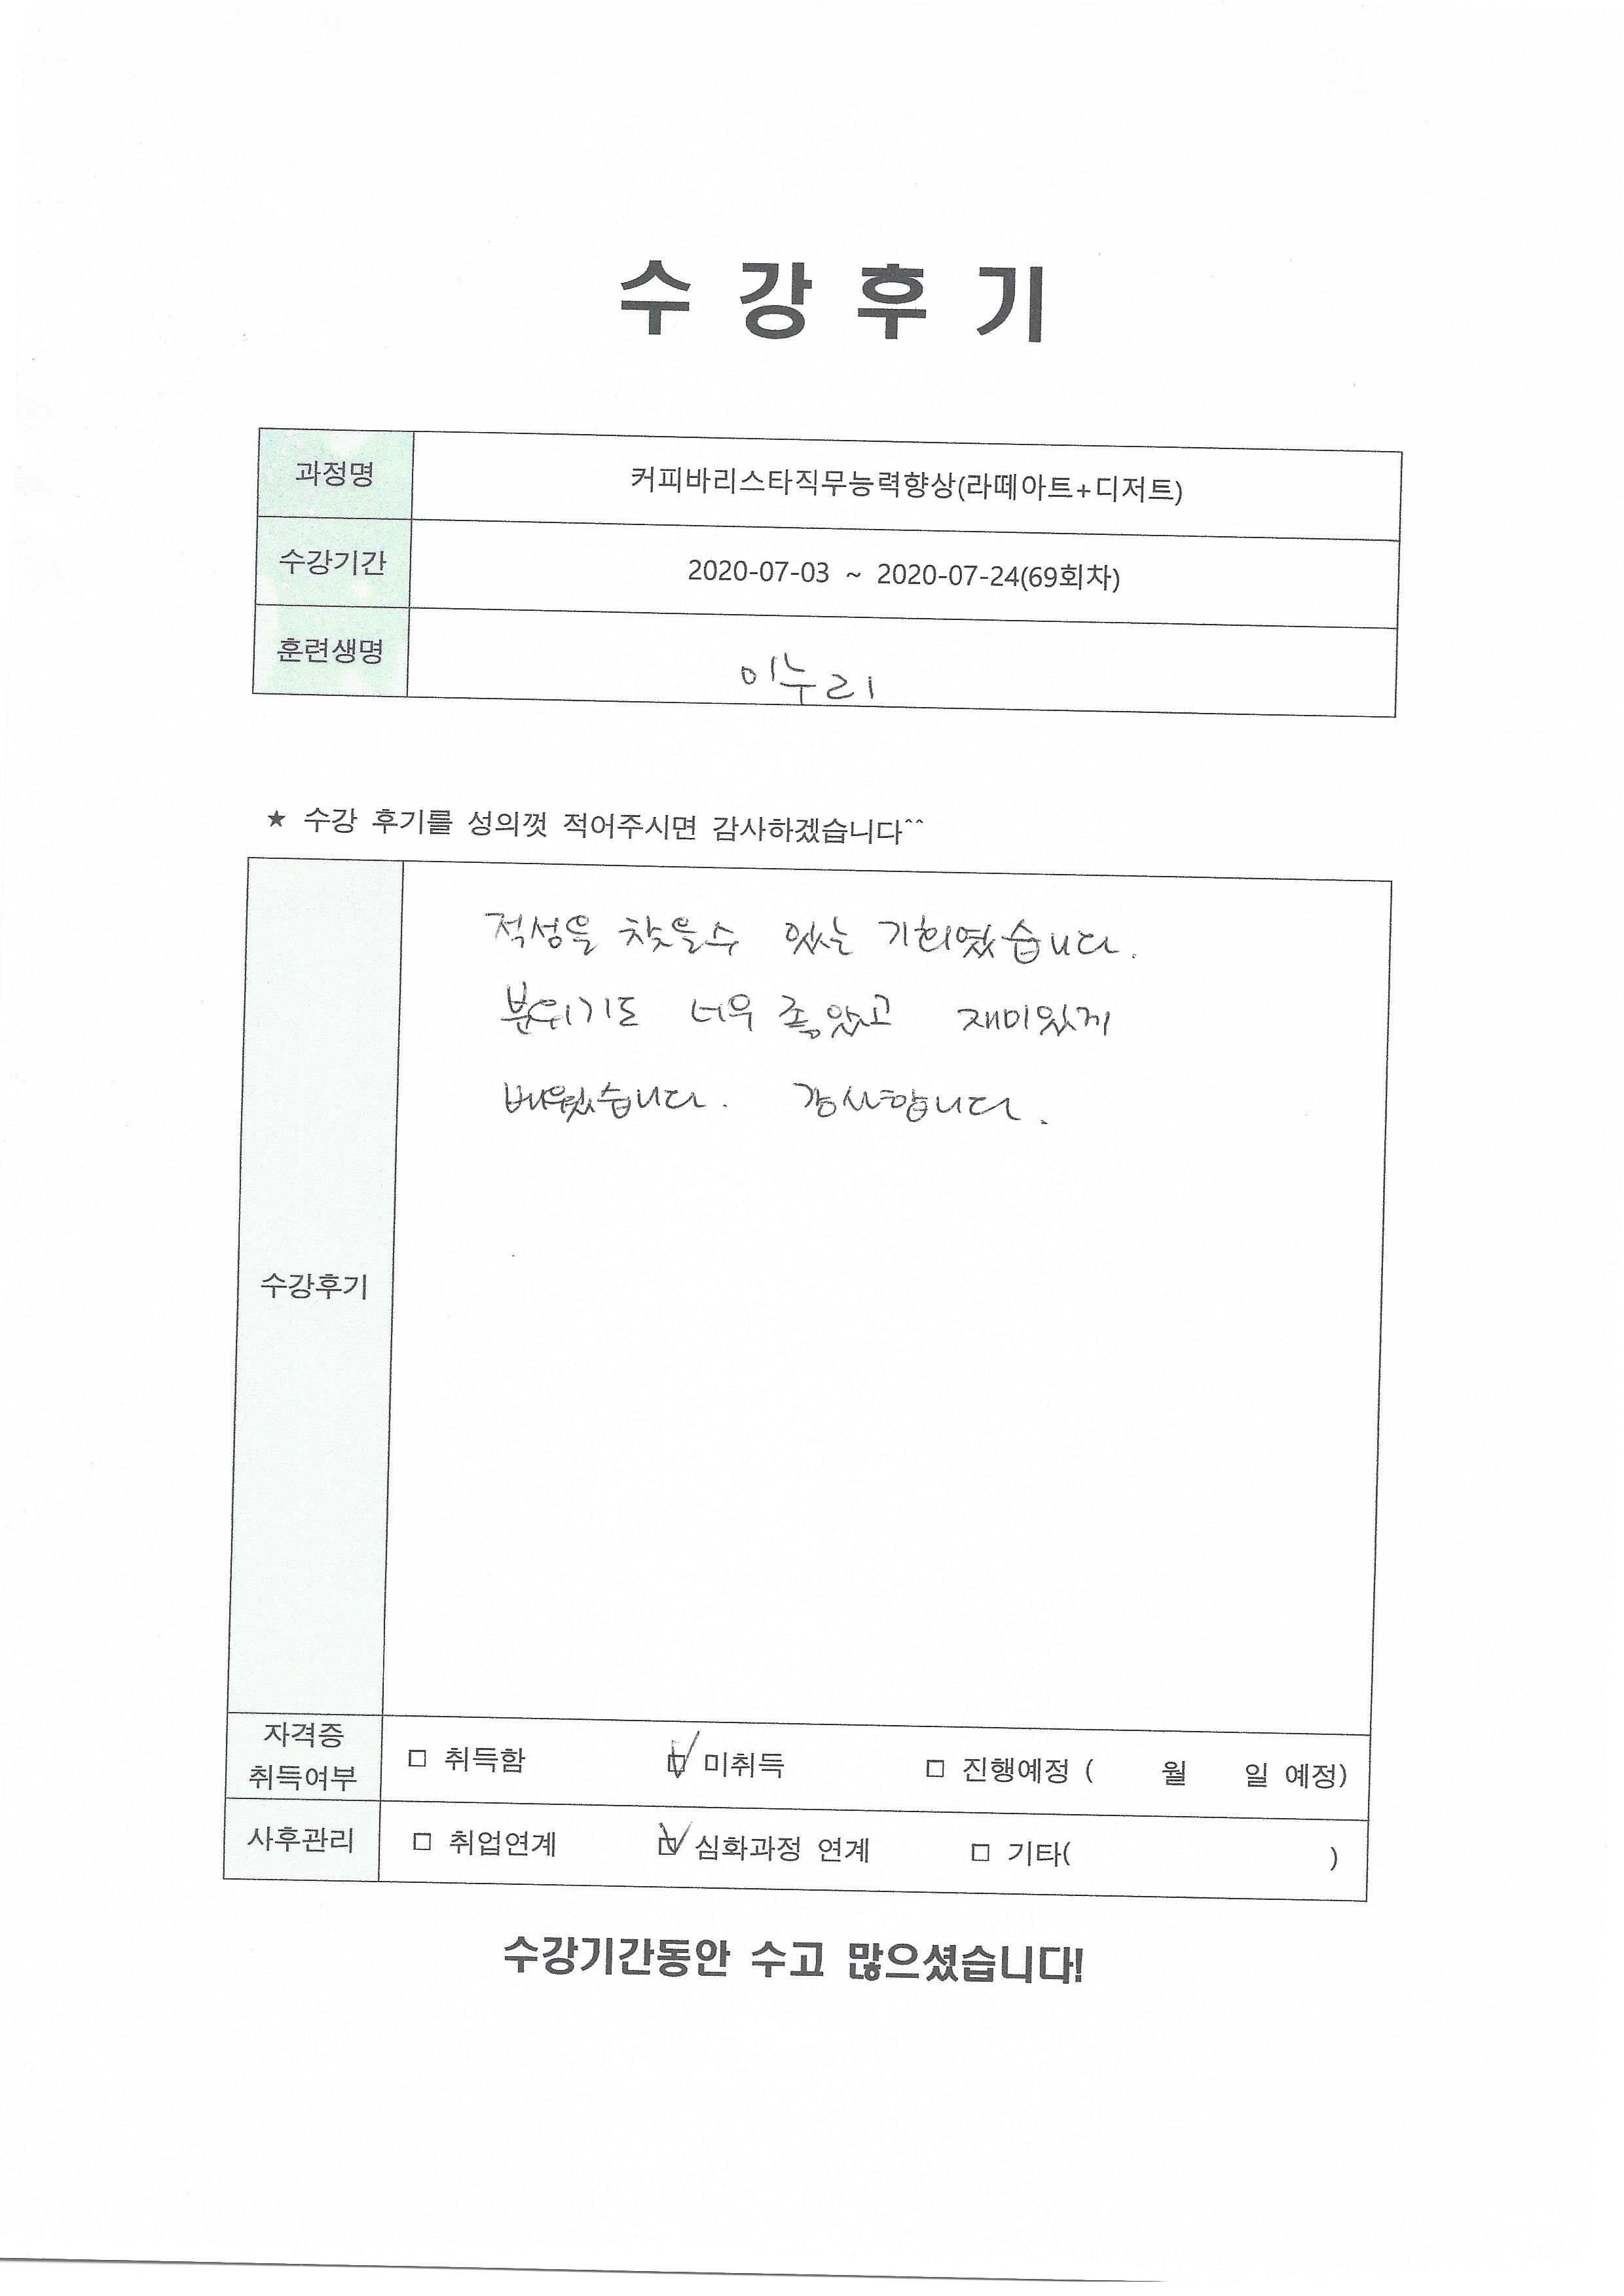 수 강 후 기
과정명 커피바리스타직무능력향상(라떼아트+디저트)
수강기간 2020-07-03 ~ 2020-07-24(69회차)
훈련생명 이누리
★ 수강 후기를 성의껏 적어주시면 감사하겠습니다^^
적성을 찾을수 있는 기회였습니다.
분위기도 너무 좋았고 재미있게
배웠습니다. 감사합니다.
수강후기
자격증
취득여부 □ 취득함 ☑ 미취득 □ 진행예정 ( 월 일 예정)
사후관리 □ 취업연계 ☑ 심화과정 연계 □ 기타( )
수강기간동안 수고 많으셨습니다!